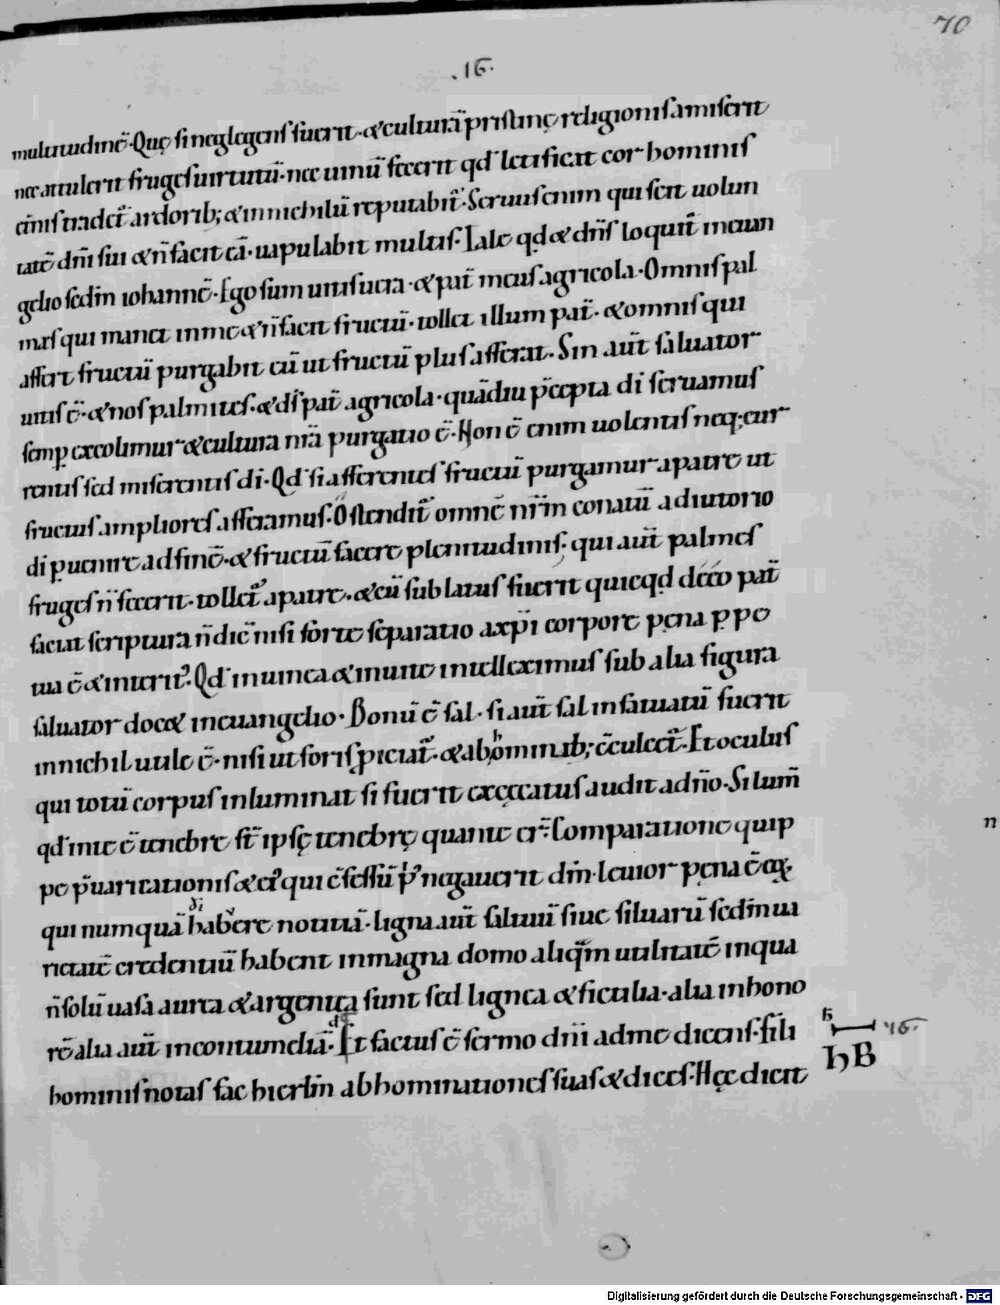 70
.16.
multitudinē. Quę si neglegens fuerit. & culturā pristinę religionis amiserit
nec attulerit fruges uirtutū. nec uinū fecerit qd̄ letificat cor hominis
ci&#772;nis tradet̄ ardorib; & innichilū reputabit̄. Seruus enim qui scit uolun
tatē dn̄i sui & n̄ facit eā. uapulabit multis. Tale qd̄ & dn̄s loquit̄ in euan
gelio sedm̄ iohannē. Ego sum uitis uera. & pat̄ meus agricola. Omnis pal
mes qui man& in me & n̄ facit fructū. toll& illum pat̄. & omnis qui
affert fructū purgabit eū ut fructū plus afferat. Sin aut̄ saluator
uitis ē. & nos palmites. & ds̄ pat̄ agricola. quādiu p̄cepta di seruamus
semp excolimur & cultura nr̄a purgatio ē. Non ē enim uolentis neq; cur
rentis sed miserentis di. Qd̄ si afferentes fructū purgamur a patre ut
fructus ampliores afferamus. Ostendit̄ omnē nr̄m conatū adiutorio
di puenire ad finē. & fructū facere plenitudinis. qui aut̄ palmes
fruges n̄ fecerit. tollet̄ a patre. & cū sublatus fuerit quicqd de eo pat̄
faciat scriptura n̄ dic̄ nisi forte separatio a xp̄i corpore pęna ppe
tua ē & interit᾽. Qd̄ in uinea & in uite intelleximus sub alia figura
saluator doc& in euangelio. Bonū ē sal. si aut̄ sal infatuatū fuerit
in nichil utile ē. nisi ut foris piciat̄. & ab hominib; cculcet̄. Et oculus
qui totū corpus inluminat si fuerit excęcatus audit a dn̄o. Si lum̄
qd̄ in te ē tenebre st̄ ipsę tenebrę quante er̄. Comparatione quip
pe p̄uaricationis & ei᾽ qui c̄fessū p᾽ negauerit dm̄. leuior pęna ē ei᾽
qui numquā habere notitiā. ligna aut̄ saltuū siue siluarū sedm̄ ua
rietatē credentiū habent in magna domo aliqm̄ utilitatē in qua
n̄ solū uasa aurea & argentea sunt sed lignea & fictilia. alia in hono
rē alia aut̄ in contumeliā. Et factus ē sermo dn̄i ad me dicens. fili
hominis notas fac hierlm̄ abhominationes suas & dices. Hęc dicit
16.
hB
n
Digitalisierung gefördert durch die Deutsche Forschungsgemeinschaft - DFG